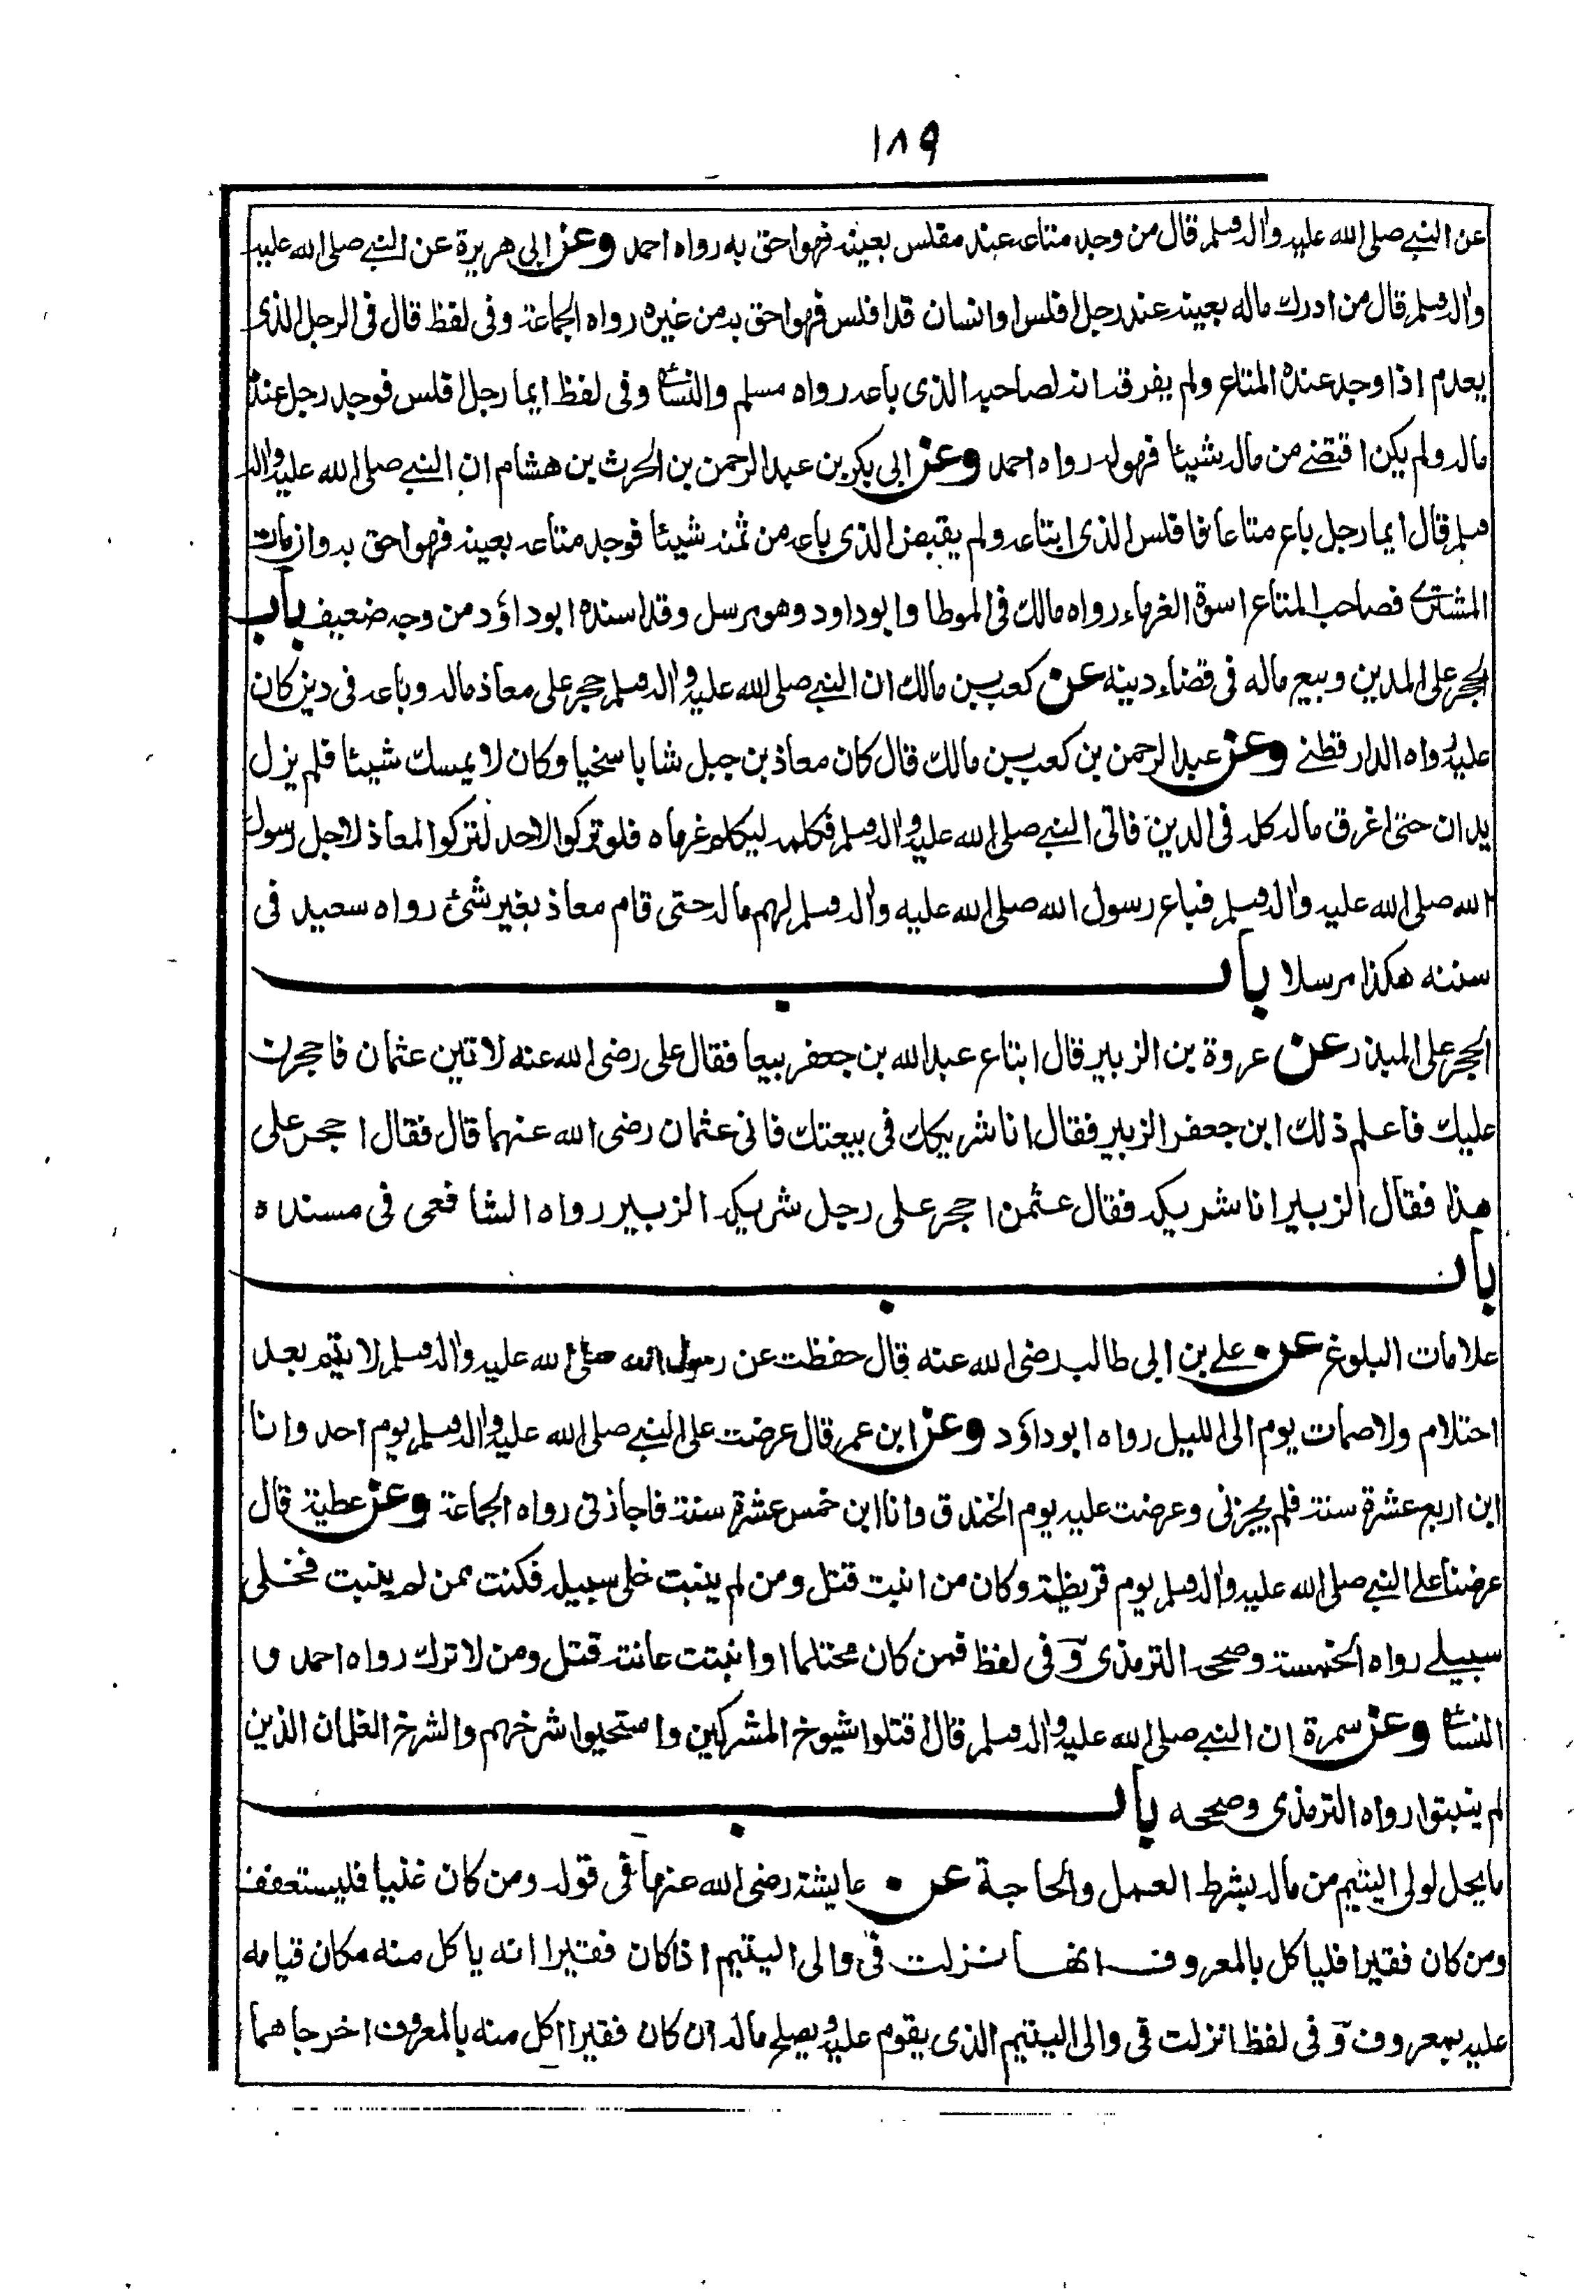 ١٨٩
عن النبي صلى الله عليه واله وسلم قال من وجد متاعه عند مفلس بعينه فهو احق به رواه احمد وعن ابى هريرة عن النبي صلى الله عليه
واله وسلم قال من ادرك ماله بعينه عند رجل افلس او انسان قد افلس فهو احق به من غيره رواه الجماعة وفى لفظ قال فى الرجل الذى
يعدم اذا وجد عنده المتاع ولم يفرقه انه لصاحبه الذى باعه رواه مسلم والنسائى وفى لفظ ايما رجل افلس فوجد رجل عنده
ماله ولم يكن اقتضى من ماله شيئا فهو له رواه احمد وعن ابى بكر بن عبد الرحمن بن الحرث بن هشام ان النبي صلى الله عليه واله
وسلم قال ايما رجل باع متاعا فافلس الذى ابتاعه ولم يقبض الذى باعه من ثمنه شيئا فوجد متاعه بعينه فهو احق به وان مات
المشترى فصاحب المتاع اسوة الغرماء رواه مالك فى الموطا وابو داود وهو مرسل وقد اسنده ابو داؤد من وجه ضعيف باب
الحجر على المدين وبيع ماله فى قضاء دينه عن كعب بن مالك ان النبي صلى الله عليه واله وسلم حجر على معاذ ماله وباعه فى دين كان
عليه رواه الدارقطنى وعن عبد الرحمن بن كعب بن مالك قال كان معاذ بن جبل شابا سخيا وكان لا يمسك شيئا فلم يزل
يدان حتى اغرق ماله كله فى الدين فاتى النبي صلى الله عليه واله وسلم فكلمه ليكلم غرماه فلو تركوا لاحد لتركوا لمعاذ لاجل رسول
الله صلى الله عليه واله وسلم فباع رسول الله صلى الله عليه واله وسلم لهم ماله حتى قام معاذ بغير شئ رواه سعيد فى
سننه هكذا مرسلا باب
الحجر على المبذر عن عروة بن الزبير قال ابتاع عبد الله بن جعفر بيعا فقال على رضى الله عنه لاتين عثمان فاحجرن
عليك فاعلم ذلك ابن جعفر الزبير فقال انا شريكك فى بيعتك فاتى عثمان رضى الله عنهما قال فقال احجر على
هذا فقال الزبير انا شريكه فقال عثمن احجر على رجل شريكه الزبير رواه الشافعى فى مسنده
باب
علامات البلوغ عن على بن ابى طالب رضى الله عنه قال حفظت عن رسول الله صلى الله عليه واله وسلم لا يتم بعد
احتلام ولا صمات يوم الى الليل رواه ابو داؤد وعن ابن عمر قال عرضت على النبي صلى الله عليه واله وسلم يوم احد وانا
ابن اربع عشرة سنة فلم يجزنى وعرضت عليه يوم الخندق وانا ابن خمس عشرة سنة فاجازنى رواه الجماعة وعن عطية قال
عرضنا على النبي صلى الله عليه واله وسلم يوم قريظة وكان من انبت قتل ومن لم ينبت خلى سبيله فكنت ممن لم ينبت فخلى
سبيلى رواه الخمسة وصححه الترمذى وفى لفظ فمن كان محتلما او انبتت عانته قتل ومن لا ترك رواه احمد و
النسائى وعن سمرة ان النبي صلى الله عليه واله وسلم قال اقتلوا شيوخ المشركين واستحيوا شرخهم والشرخ الغلمان الذين
لم ينبتوا رواه الترمذى وصححه باب
ما يحل لولى اليتيم من ماله بشرط العمل والحاجة عن عايشة رضى الله عنها فى قوله ومن كان غنيا فليستعفف
ومن كان فقيرا فلياكل بالمعروف انها نزلت فى والى اليتيم اذا كان فقيرا انه ياكل منه مكان قيامه
عليه بمعروف وفى لفظ انزلت فى والى اليتيم الذى يقوم عليه ويصلح ماله ان كان فقيرا اكل منه بالمعروف اخرجاهما